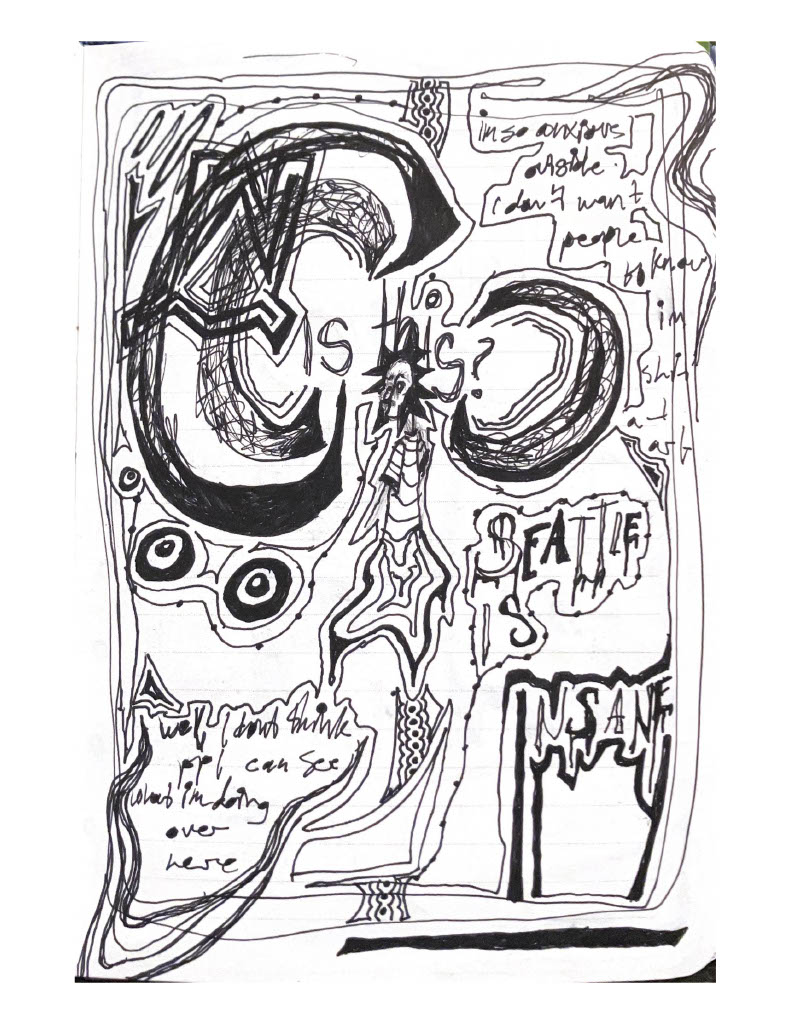 im so anxious
outside.
i don't want
people
to know
im
shit
at
art
is this?
SEATTLE
IS
INSANE
well, i dont think
ppl can see
what im doing
over
here